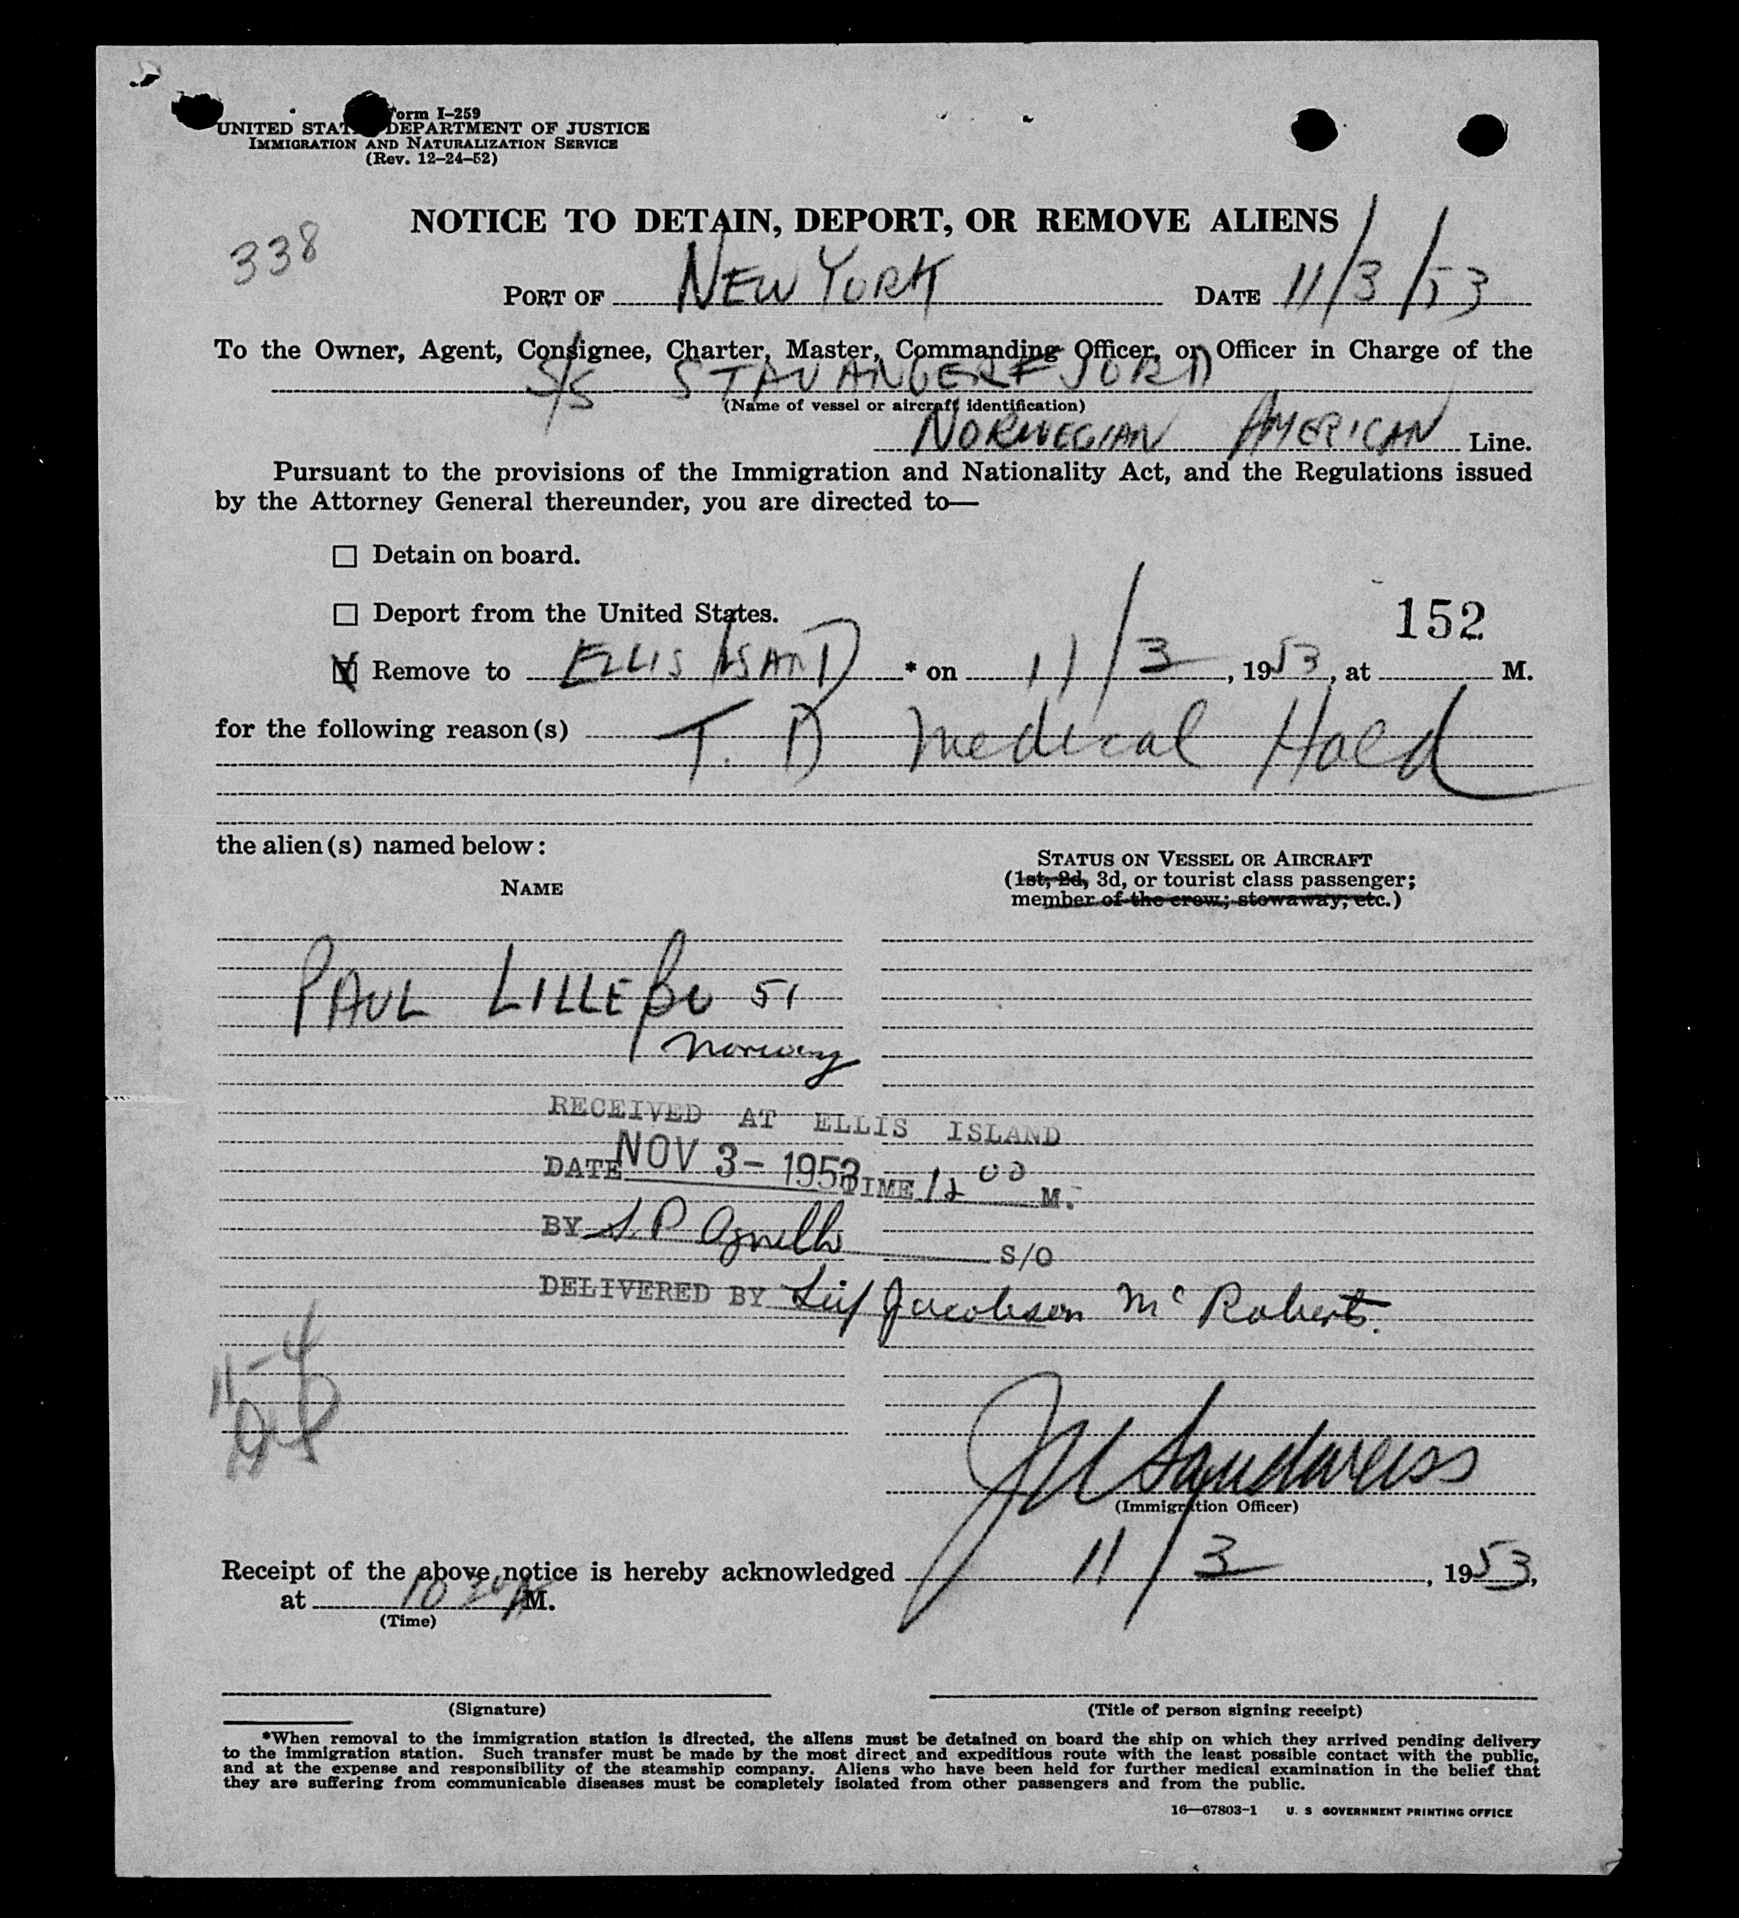 Form I-259
UNITED STATES DEPARTMENT OF JUSTICE
IMMIGRATION AND NATURALIZATION SERVICE
(Rev. 12-24-52)
NOTICE TO DETAIN, DEPORT, OR REMOVE ALIENS
338
PORT OF NEW YORK DATE 11/3/53
To the Owner, Agent, Consignee, Charter, Master, Commanding Officer, or Officer in Charge of the
S/S STAVANGERFJORD
(Name of vessel or aircraft identification)
NORWEGIAN AMERICAN Line.
Pursuant to the provisions of the Immigration and Nationality Act, and the Regulations issued
by the Attorney General thereunder, you are directed to—
Detain on board.
Deport from the United States.
152
Remove to ELLIS ISAND * on 11/3, 1953, at M.
for the following reason(s) T. D Medical Hold
the alien(s) named below:
STATUS ON VESSEL OR AIRCRAFT
NAME
(1st, 2d, 3d, or tourist class passenger;
member of the crew; stowaway; etc.)
PAUL LILLEBO 51
Norway
RECEIVED AT ELLIS ISLAND
DATE NOV 3-1953 TIME 12 00 M.
BY S. P Agnello S/O
DELIVERED BY Leif Jacobsen McRoberts.
11-4
Sandweiss
(Immigration Officer)
Receipt of the above notice is hereby acknowledged 11/3, 1953,
at 10 30 A M.
(Time)
(Signature) (Title of person signing receipt)
*When removal to the immigration station is directed, the aliens must be detained on board the ship on which they arrived pending delivery
to the immigration station. Such transfer must be made by the most direct and expeditious route with the least possible contact with the public,
and at the expense and responsibility of the steamship company. Aliens who have been held for further medical examination in the belief that
they are suffering from communicable diseases must be completely isolated from other passengers and from the public.
16—67803-1 U. S GOVERNMENT PRINTING OFFICE